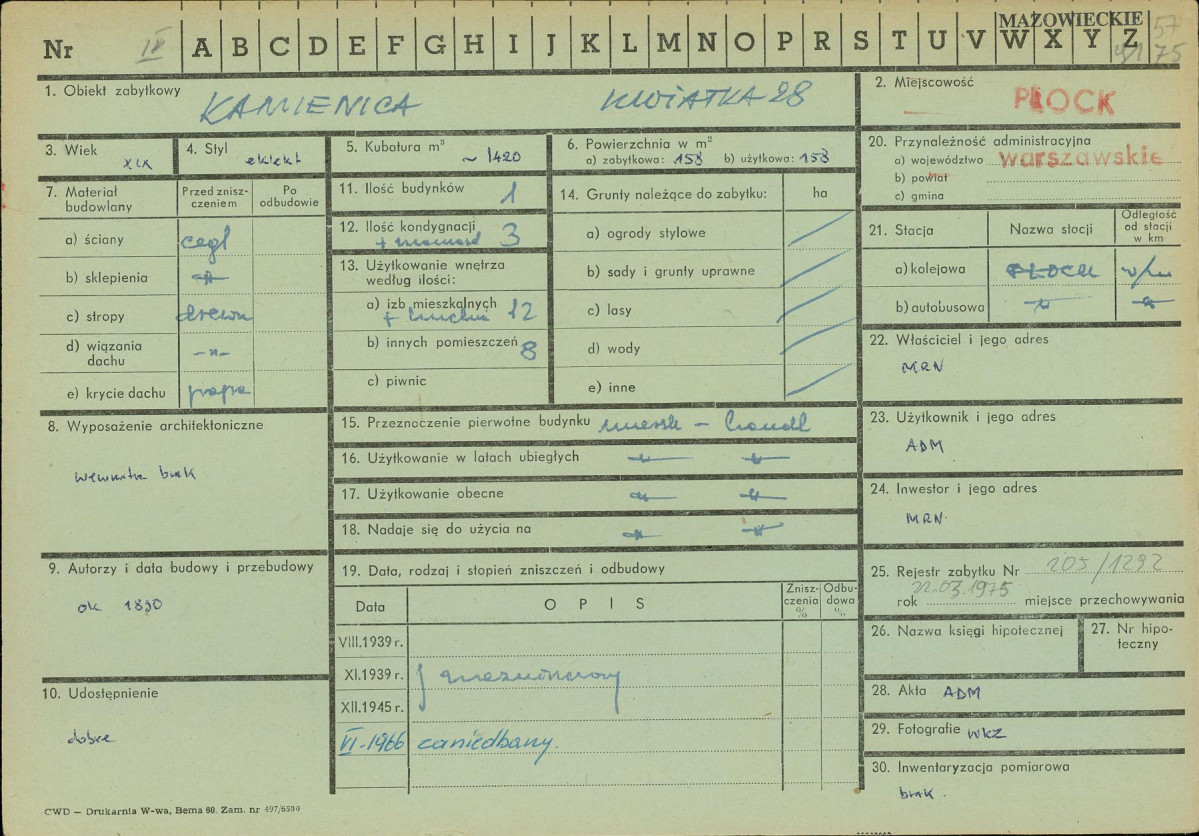 MAZOWIECKIE
Nr IV A B C D E F G H I J K L M N O P R S T U V W X Y Z 57
75
1. Obiekt zabytkowy KAMIENICA KWIATKA 28
2. Miejscowość PŁOCK
3. Wiek XIX
4. Styl eklekt
5. Kubatura m³ ~ 1420
6. Powierzchnia w m²
a) zabytkowa: 158 b) użytkowa: 158
20. Przynależność administracyjna
a) województwo warszawskie
b) powiat
c) gmina
7. Materiał budowlany
Przed zniszczeniem
Po odbudowie
a) ściany cegł
b) sklepienia -"-
c) stropy drewn
d) wiązania dachu -"-
e) krycie dachu papa
11. Ilość budynków 1
12. Ilość kondygnacji 3
13. Użytkowanie wnętrza według ilości:
a) izb mieszkalnych 12
b) innych pomieszczeń 8
c) piwnic
14. Grunty należące do zabytku: ha
a) ogrody stylowe
b) sady i grunty uprawne
c) lasy
d) wody
e) inne
21. Stacja
Nazwa stacji
Odległość od stacji w km
a) kolejowa PŁOCK
b) autobusowa -"- -"-
22. Właściciel i jego adres
MRN
23. Użytkownik i jego adres
ADM
24. Inwestor i jego adres
MRN
8. Wyposażenie architektoniczne
wewnątrz brak
15. Przeznaczenie pierwotne budynku mieszk - handl
16. Użytkowanie w latach ubiegłych -"- -"-
17. Użytkowanie obecne -"- -"-
18. Nadaje się do użycia na -"- -"-
9. Autorzy i data budowy i przebudowy
ok 1890
19. Data, rodzaj i stopień zniszczeń i odbudowy
Data
O P I S
Zniszczenia %
Odbudowa %
VIII.1939 r.
XI.1939 r.
XII.1945 r.
VI-1966 zaniedbany.
10. Udostępnienie
dobre
25. Rejestr zabytku Nr 205/1292
rok 22.03.1975 miejsce przechowywania
26. Nazwa księgi hipotecznej
27. Nr hipoteczny
28. Akta ADM
29. Fotografie WKZ
30. Inwentaryzacja pomiarowa
brak.
CWD — Drukarnia W-wa, Bema 60. Zam. nr 497/6500